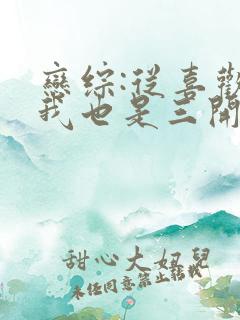 戀綜:從喜歡
我也是三開
甜心大妞兒
未经同意禁止转载